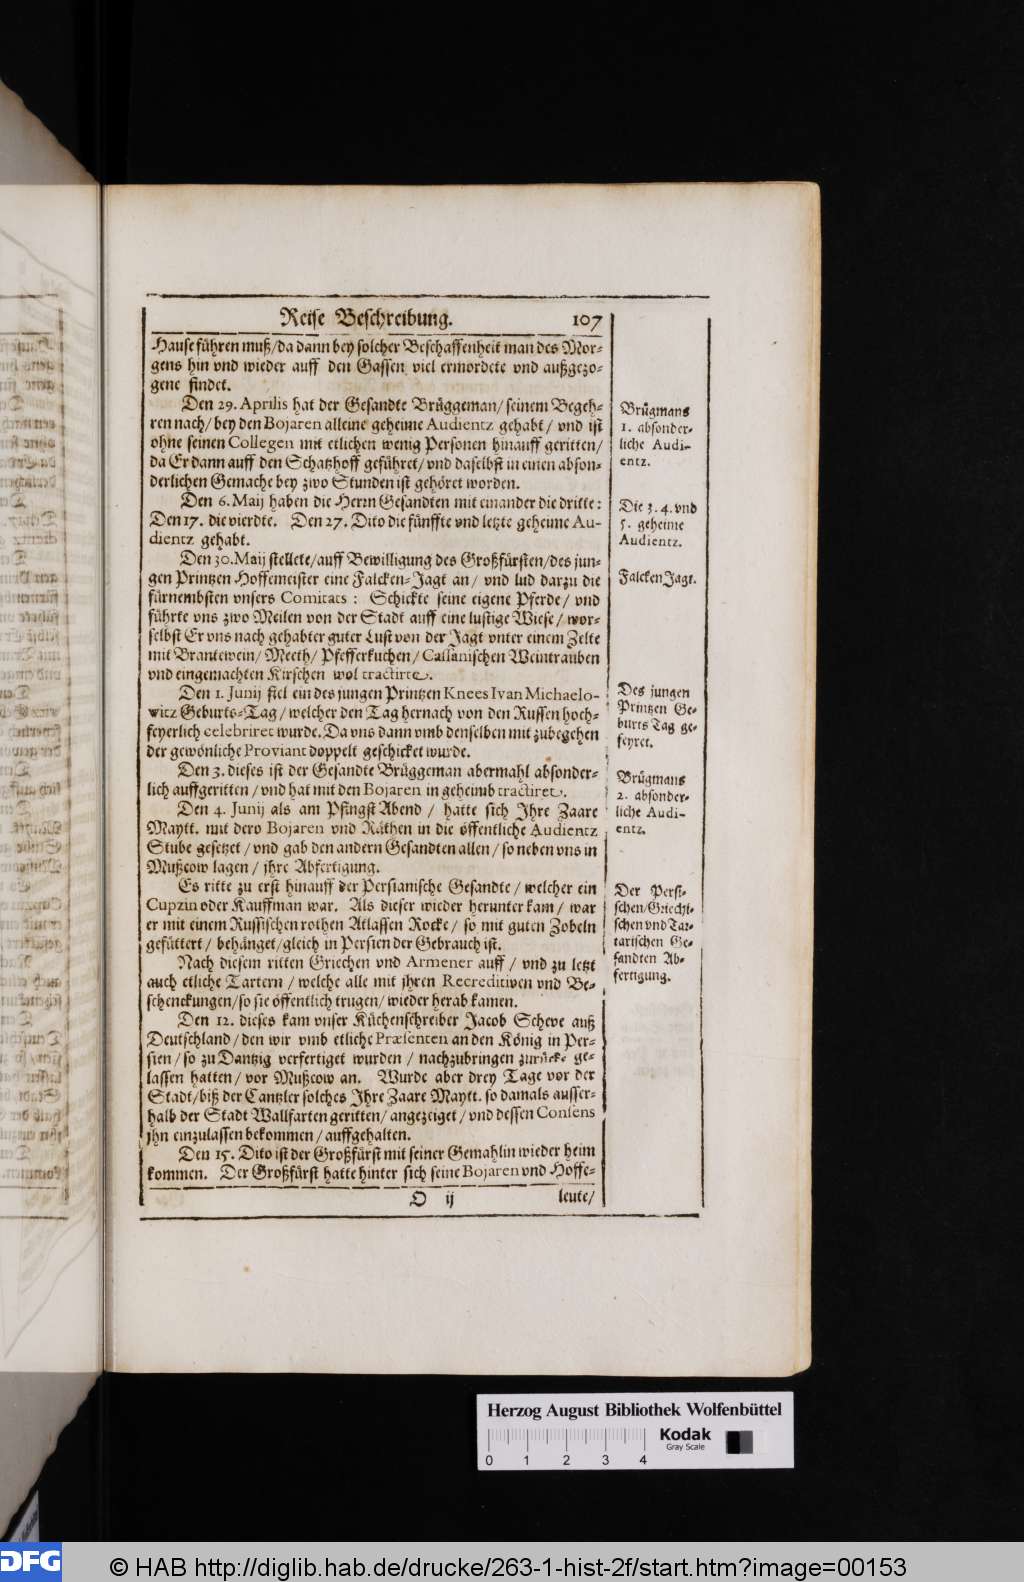 Reise Beschreibung. 107
Hause führen muß/da dann bey solcher Beschaffenheit man des Mor-
gens hin vnd wieder auff den Gassen viel ermordete vnd außgezo-
gene findet.
Den 29. Aprilis hat der Gesandte Brüggeman/seinem Begeh-
ren nach/bey den Bojaren alleine geheime Audientz gehabt/ vnd ist
ohne seinen Collegen mit etlichen wenig Personen hinauff geritten/
da Er dann auff den Schatzhoff geführet/vnd daselbst in einen abson-
derlichen Gemache bey zwo Stunden ist gehöret worden.
Den 6. Maij haben die Herrn Gesandten mit einander die dritte:
Den 17. die vierdte. Den 27. Dito die fünffte vnd letzte geheime Au-
dientz gehabt.
Den 30. Maij stellete/auff Bewilligung des Großfürsten/des jun-
gen Printzen Hoffemeister eine Falcken-Jagt an/ vnd lud darzu die
fürnembsten vnsers Comitats: Schickte seine eigene Pferde/ vnd
führte vns zwo Meilen von der Stadt auff eine lustige Wiese/ wor-
selbst Er vns nach gehabter guter Lust von der Jagt vnter einem Zelte
mit Brantewein/ Meeth/ Pfefferkuchen/ Cassanischen Weintrauben
vnd eingemachten Kirschen wol tractirte.
Den 1. Junij fiel ein des jungen Printzen Knees Ivan Michaelo-
witz Geburts-Tag/welcher den Tag hernach von den Russen hoch-
feyerlich celebriret wurde. Da vns dann vmb denselben mit zubegehen
der gewönliche Proviant doppelt geschicket wurde.
Den 3. dieses ist der Gesandte Brüggeman abermahl absonder-
lich auffgeritten/vnd hat mit den Bojaren in geheimb tractiret.
Den 4. Junij als am Pfingst Abend / hatte sich Ihre Zaare
Maytt. mit dero Bojaren vnd Räthen in die öffentliche Audientz
Stube gesetzet/vnd gab den andern Gesandten allen/ so neben vns in
Mußcow lagen/ jhre Abfertigung.
Es ritte zu erst hinauff der Persianische Gesandte/ welcher ein
Cupzin oder Kauffman war. Als dieser wieder herunter kam/ war
er mit einem Russischen rothen Atlassen Rocke/ so mit guten Zobeln
gefüttert/ behänget/gleich in Persien der Gebrauch ist.
Nach diesem ritten Griechen vnd Armener auff/ vnd zu letzt
auch etliche Tartern/ welche alle mit jhren Recreditiven vnd Be-
schenckungen/so sie öffentlich trugen/wieder herab kamen.
Den 12. dieses kam vnser Küchenschreiber Jacob Scheve auß
Deutschland/den wir vmb etliche Præsenten an den König in Per-
sien/so zu Dantzig verfertiget wurden/ nachzubringen zurücke ge-
lassen hatten/ vor Mußcow an. Wurde aber drey Tage vor der
Stadt/biß der Cantzler solches Ihre Zaare Maytt. so damals ausser-
halb der Stadt Wallfarten geritten/angezeiget/vnd dessen Consens
jhn einzulassen bekommen/auffgehalten.
Den 15. Dito ist der Großfürst mit seiner Gemahlin wieder heim
kommen. Der Großfürst hatte hinter sich seine Bojaren vnd Hoffe-
O ij leute/
Brügmans
1. absonder-
liche Audi-
entz.
Die 3. 4. vnd
5. geheime
Audientz.
Falcken Jagt.
Des jungen
Printzen Ge-
burts Tag ge-
feyret.
Brügmans
2. absonder-
liche Audi-
entz.
Der Persi-
schen/Griechi-
schen vnd Tar-
tarischen Ge-
sandten Ab-
fertigung.
Herzog August Bibliothek Wolfenbüttel
Kodak
Gray Scale
0 1 2 3 4
DFG
© HAB http://diglib.hab.de/drucke/263-1-hist-2f/start.htm?image=00153